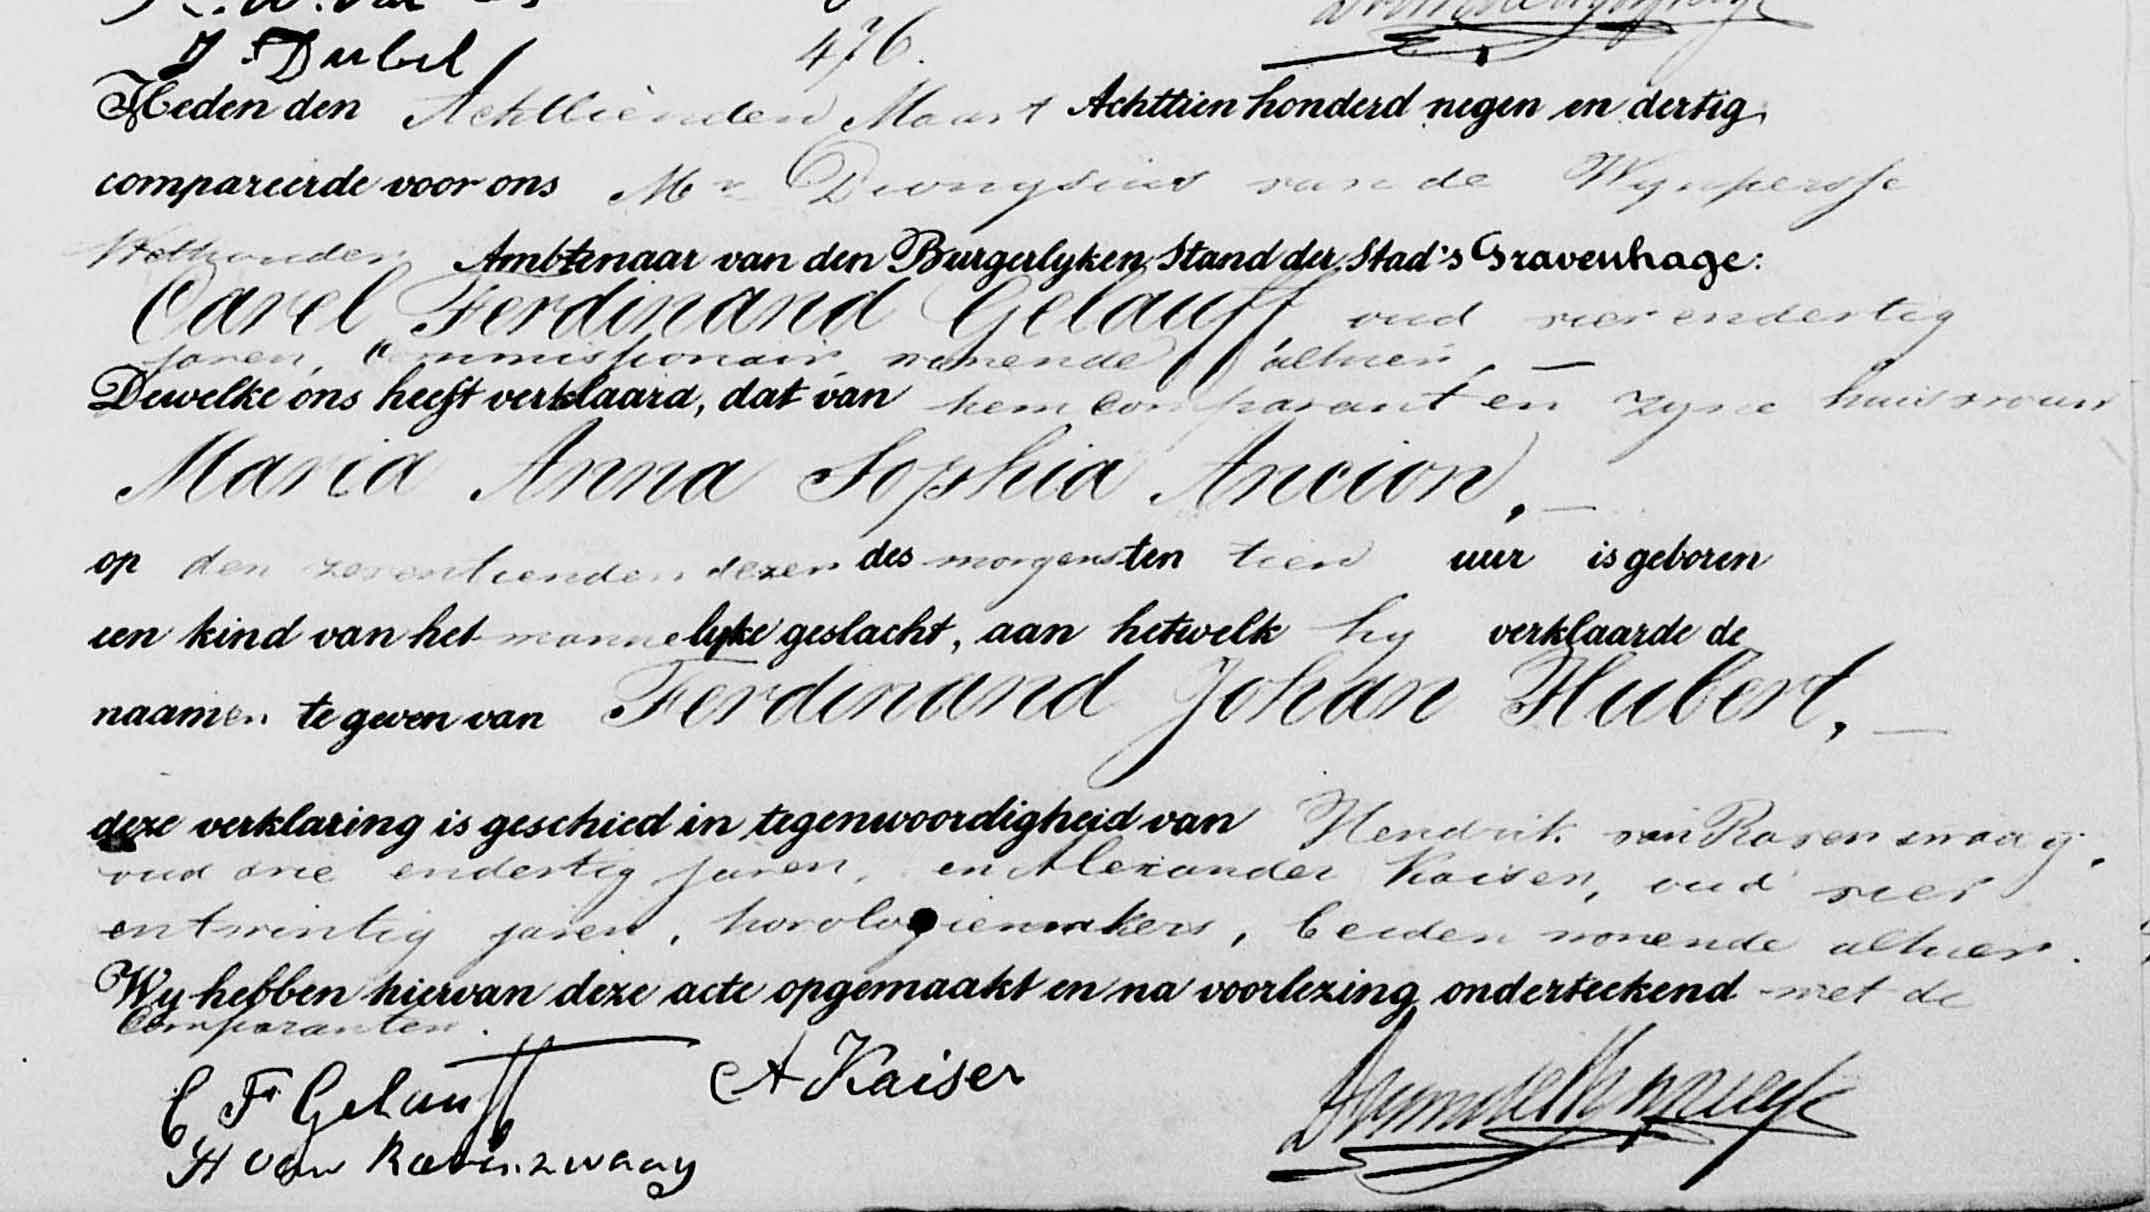 J. Dubel
476.
Heden den Achttienden Maart Achttien honderd negen en dertig
compareerde voor ons Mr Dionysius van de Wynpersse
Wethouder Ambtenaar van den Burgerlyken Stand der Stad 's Gravenhage:
Carel Ferdinand Gelauff oud vier en dertig
jaren, Commissionair, wonende alhier, —
Dewelke ons heeft verklaard, dat van hem Comparant en zyne huisvrouw
Maria Anna Sophia Ancion, —
op den zeventienden dezer des morgens ten tien uur is geboren
een kind van het mannelyke geslacht, aan hetwelk hy verklaarde de
naamen te geven van Ferdinand Johan Hubert, —
deze verklaring is geschied in tegenwoordigheid van Hendrik van Ravenswaay,
oud drie en dertig jaren, en Alexander Kaiser, oud vier
en twintig jaren, horologiemakers, beiden wonende alhier.
Wy hebben hiervan deze acte opgemaakt en na voorlezing onderteekend met de
Comparanten.
C F Gelauff A Kaiser
H van Ravenzwaay